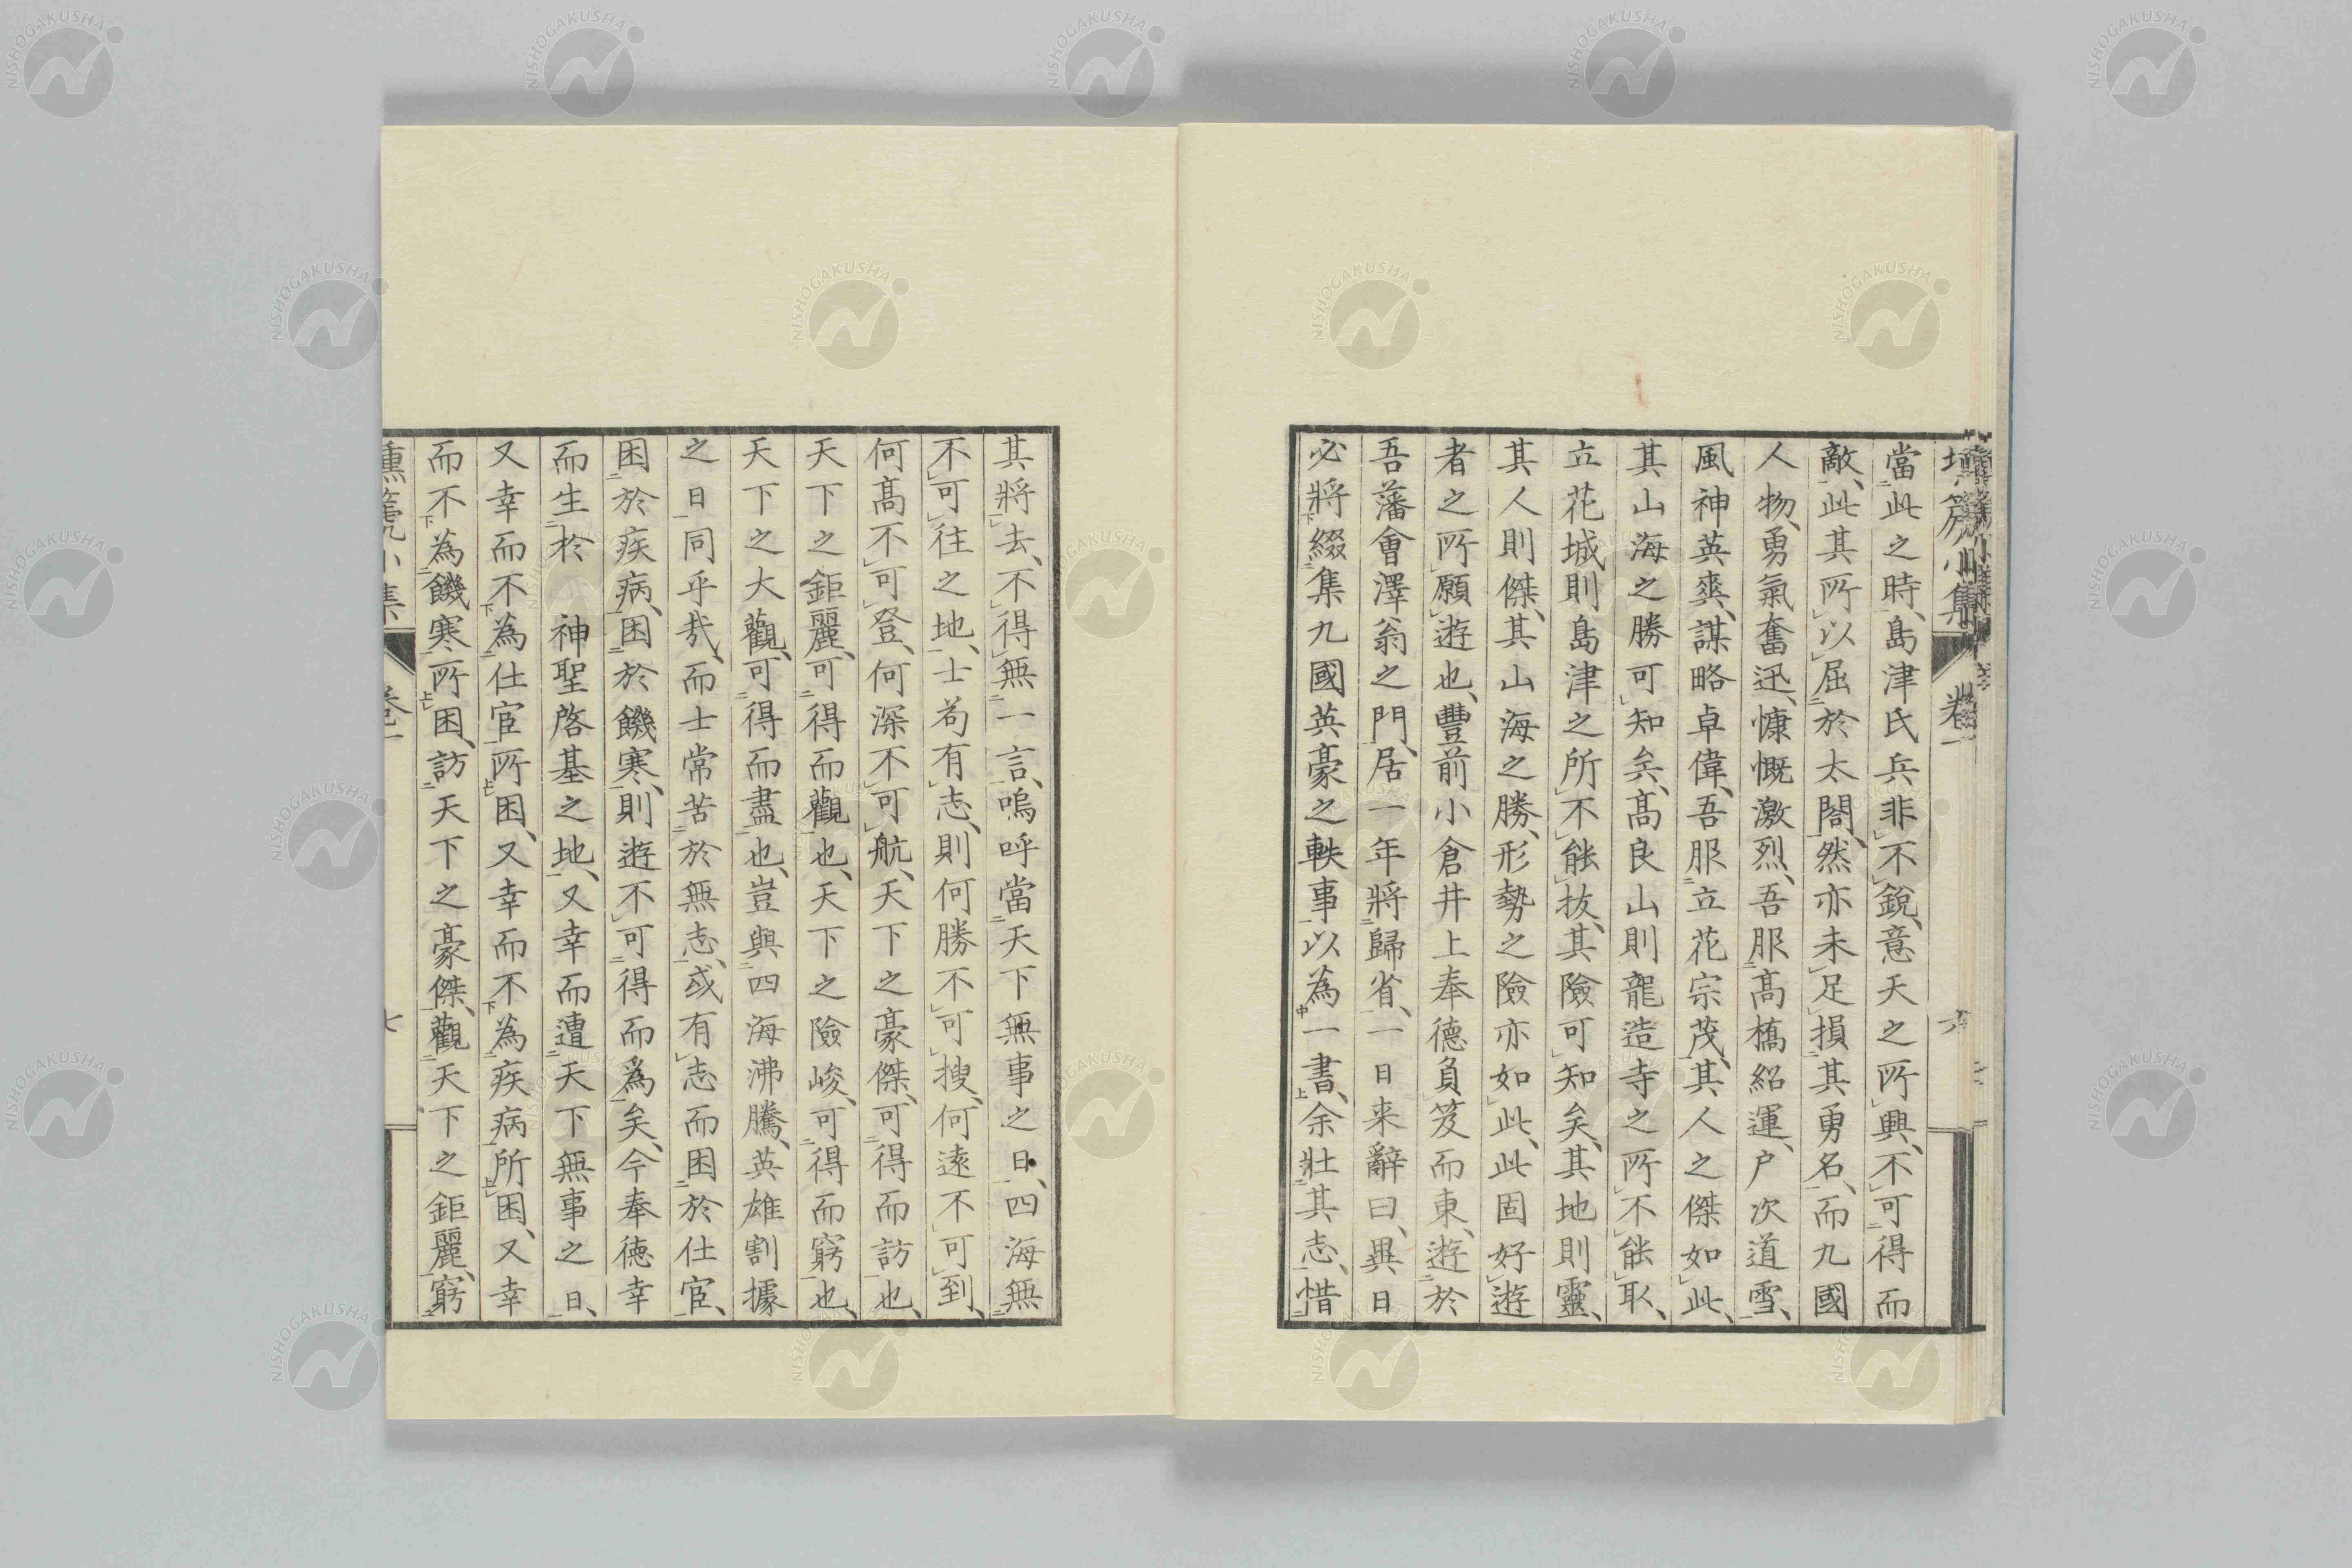 當此之時、島津氏兵非不銳、意天之所興、不可得而
敵、此其所以屈於太閤、然亦未足損其勇名、而九國
人物、勇氣奮迅、慷慨激烈、吾服高橋紹運、戶次道雪、
風神英爽、謀略卓偉、吾服立花宗茂、其人之傑如此、
其山海之勝可知矣、高良山則龍造寺之所不能取、
立花城則島津之所不能抜、其險可知矣、其地則靈、
其人則傑、其山海之勝、形勢之險亦如此、此固好遊
者之所願遊也、豐前小倉井上奉德負笈而東、遊於
吾藩會澤翁之門、居一年將歸省、一日来辭曰、異日
必將綴集九國英豪之軼事以為一書、余壯其志、惜
其將去、不得無一言、嗚呼當天下無事之日、四海無
不可往之地、士苟有志、則何勝不可搜、何遠不可到、
何高不可登、何深不可航、天下之豪傑、可得而訪也、
天下之鉅麗、可得而觀也、天下之險峻、可得而窮也、
天下之大觀、可得而盡也、豈與四海沸騰、英雄割據
之日同乎哉、而士常苦於無志、或有志而困於仕宦、
困於疾病、困於饑寒、則遊不可得而爲矣、今奉德幸
而生於 神聖啓基之地、又幸而遭天下無事之日、
又幸而不為仕宦所困、又幸而不為疾病所困、又幸
而不為饑寒所困、訪天下之豪傑、觀天下之鉅麗、窮
卷一
六
NISHOGAKUSHA